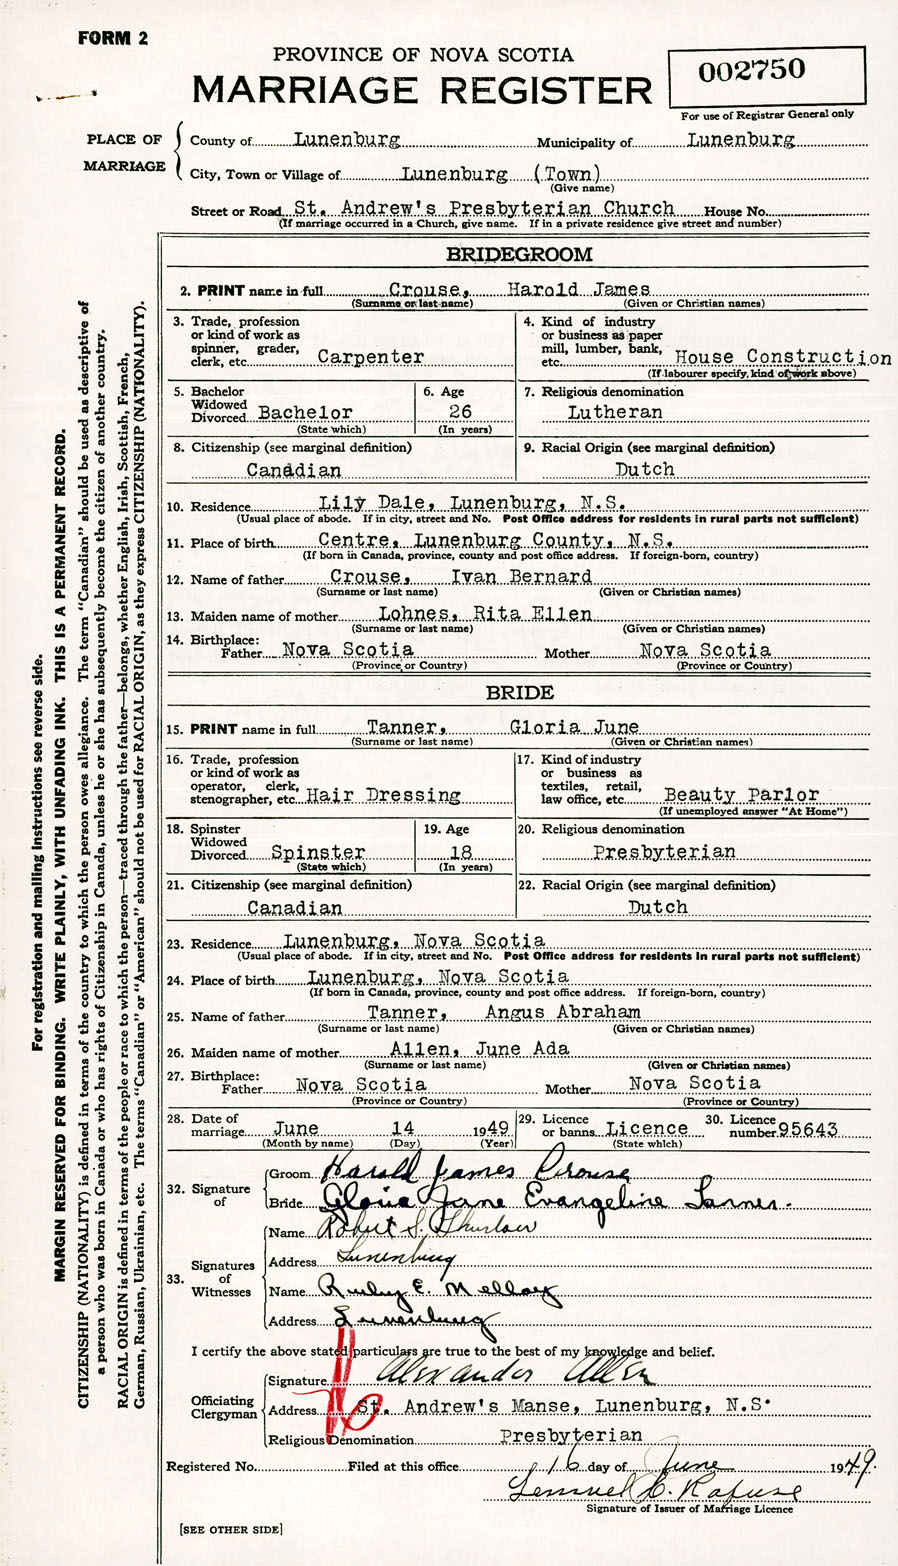 FORM 2
PROVINCE OF NOVA SCOTIA
MARRIAGE REGISTER
002750
For use of Registrar General only
PLACE OF MARRIAGE
County of Lunenburg Municipality of Lunenburg
City, Town or Village of Lunenburg (Town)
(Give name)
Street or Road St. Andrew's Presbyterian Church House No.
(If marriage occurred in a Church, give name. If in a private residence give street and number)
BRIDEGROOM
2. PRINT name in full Crouse, Harold James
(Surname or last name) (Given or Christian names)
3. Trade, profession or kind of work as spinner, grader, clerk, etc. Carpenter
4. Kind of industry or business as paper mill, lumber, bank, etc. House Construction
(If labourer specify, kind of work above)
5. Bachelor Widowed Divorced Bachelor
(State which)
6. Age 26
(In years)
7. Religious denomination
Lutheran
8. Citizenship (see marginal definition)
Canadian
9. Racial Origin (see marginal definition)
Dutch
10. Residence Lily Dale, Lunenburg, N.S.
(Usual place of abode. If in city, street and No. Post Office address for residents in rural parts not sufficient)
11. Place of birth Centre, Lunenburg County, N.S.
(If born in Canada, province, county and post office address. If foreign-born, country)
12. Name of father Crouse, Ivan Bernard
(Surname or last name) (Given or Christian names)
13. Maiden name of mother Lohnes, Rita Ellen
(Surname or last name) (Given or Christian names)
14. Birthplace:
Father Nova Scotia Mother Nova Scotia
(Province or Country) (Province or Country)
BRIDE
15. PRINT name in full Tanner, Gloria June
(Surname or last name) (Given or Christian names)
16. Trade, profession or kind of work as operator, clerk, stenographer, etc. Hair Dressing
17. Kind of industry or business as textiles, retail, law office, etc. Beauty Parlor
(If unemployed answer "At Home")
18. Spinster Widowed Divorced Spinster
(State which)
19. Age 18
(In years)
20. Religious denomination
Presbyterian
21. Citizenship (see marginal definition)
Canadian
22. Racial Origin (see marginal definition)
Dutch
23. Residence Lunenburg, Nova Scotia
(Usual place of abode. If in city, street and No. Post Office address for residents in rural parts not sufficient)
24. Place of birth Lunenburg, Nova Scotia
(If born in Canada, province, county and post office address. If foreign-born, country)
25. Name of father Tanner, Angus Abraham
(Surname or last name) (Given or Christian names)
26. Maiden name of mother Allen, June Ada
(Surname or last name) (Given or Christian names)
27. Birthplace:
Father Nova Scotia Mother Nova Scotia
(Province or Country) (Province or Country)
28. Date of marriage June 14 1949
(Month by name) (Day) (Year)
29. Licence or banns Licence
(State which)
30. Licence number 95643
32. Signature of
Groom Harold James Crouse
Bride Gloria June Evangeline Tanner.
33. Signatures of Witnesses
Name Robert S. Thurlow
Address Lunenburg
Name Ruby E. Melloy
Address Lunenburg
I certify the above stated particulars are true to the best of my knowledge and belief.
Officiating Clergyman
Signature Alexander Allen
Address St. Andrew's Manse, Lunenburg, N.S.
Religious Denomination Presbyterian
Registered No. Filed at this office 16 day of June 1949.
Lemuel C. Rafuse
Signature of Issuer of Marriage Licence
[SEE OTHER SIDE]
For registration and mailing instructions see reverse side.
MARGIN RESERVED FOR BINDING. WRITE PLAINLY, WITH UNFADING INK. THIS IS A PERMANENT RECORD.
CITIZENSHIP (NATIONALITY) is defined in terms of the country to which the person owes allegiance. The term "Canadian" should be used as descriptive of
a person who was born in Canada or who has rights of Citizenship in Canada, unless he or she has subsequently become the citizen of another country.
RACIAL ORIGIN is defined in terms of the people or race to which the person—traced through the father—belongs, whether English, Irish, Scottish, French,
German, Russian, Ukrainian, etc. The terms "Canadian" or "American" should not be used for RACIAL ORIGIN, as they express CITIZENSHIP (NATIONALITY).